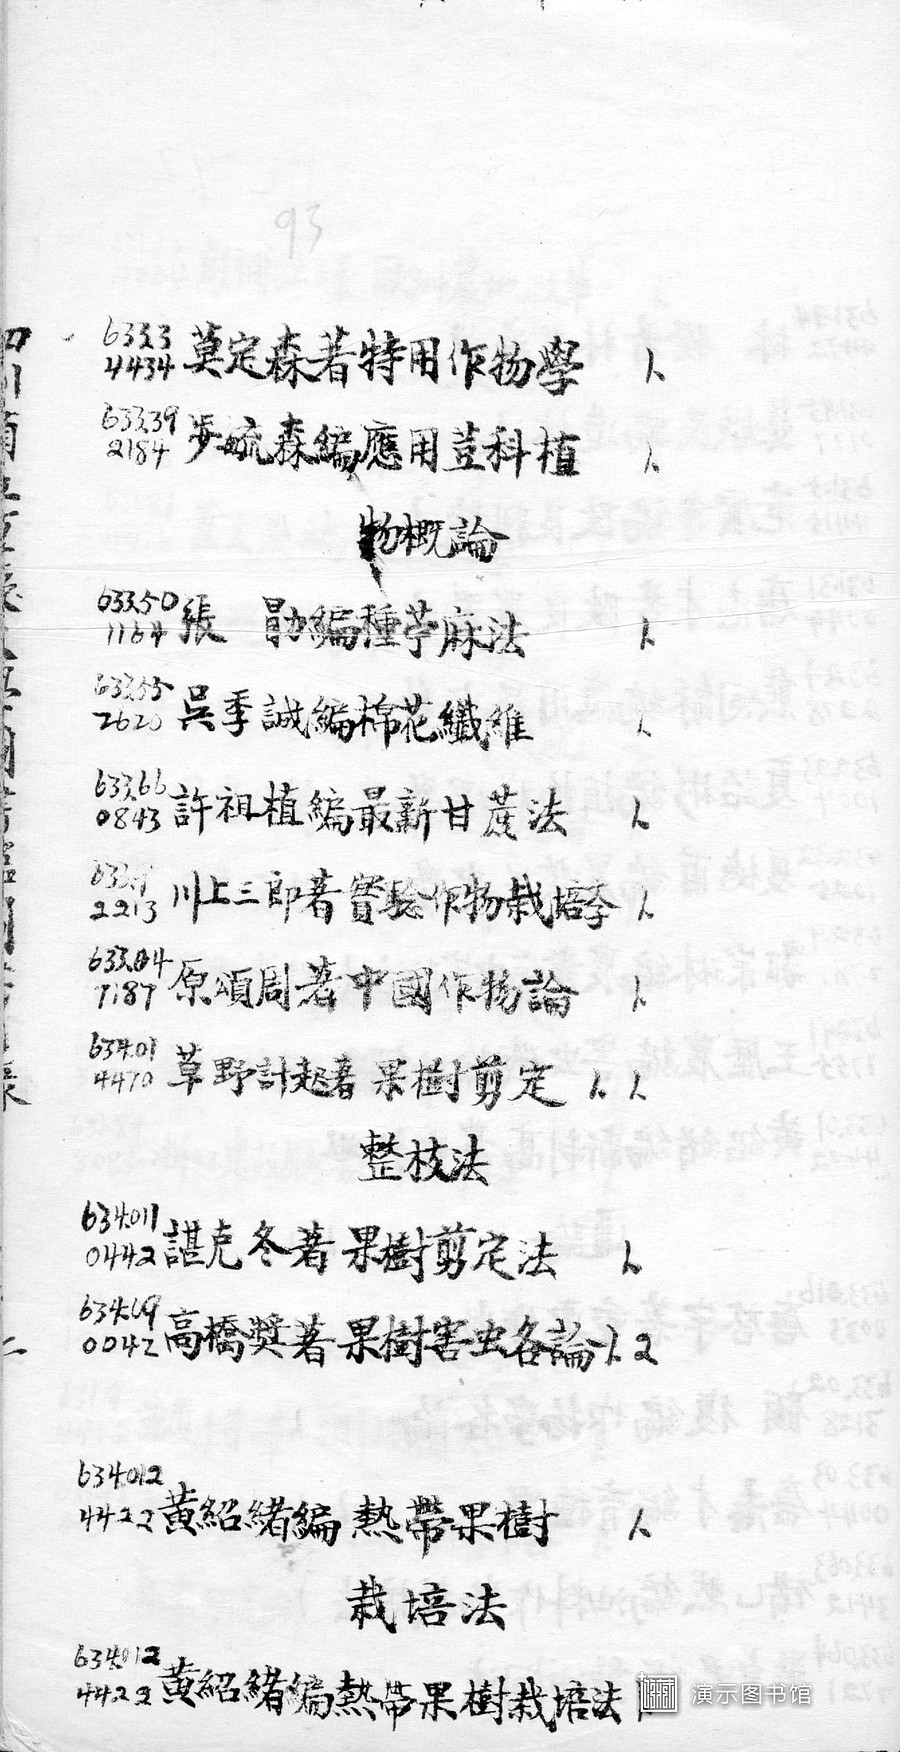 93
633.3
4434 莫定森著特用作物學 1.
633.39
2184 步毓森編應用荳科植 1.
物概論
633.50
1164 張 勛編種苧麻法 1.
633.55
2620 吳季誠編棉花纖維 1.
633.66
0843 許祖植編最新甘蔗法 1.
2213 川上三郎著實驗作物栽培季 1.
633.04
7187 原頌周著中國作物論 1.
634.01
4470 草野計起著果樹剪定 1. 1.
整枝法
634.011
0442 諶克冬著果樹剪定法 1.
634.69
0042 高橋獎著果樹害虫各論 1. 2
634.012
4422 黃紹緒編熱帶果樹 1.
栽培法
634.012
4422 黃紹緒編熱帶果樹栽培法
演示图书馆